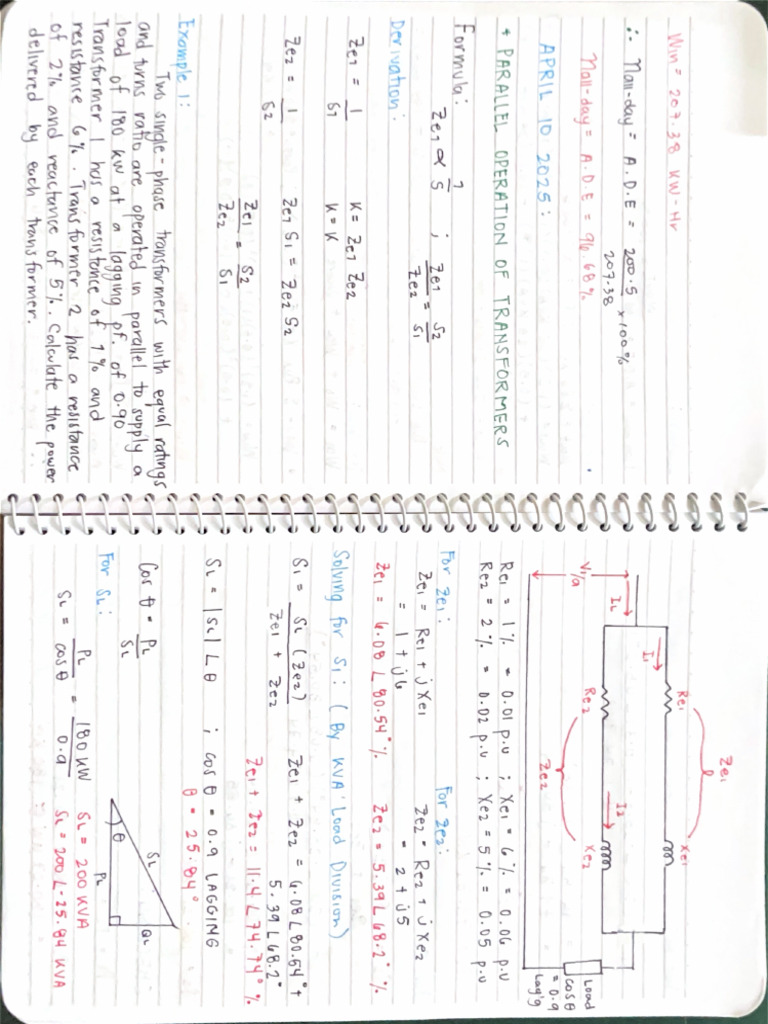 Win = 207.38 KW-Hr
∴ ηall-day = A.D.E = 200.5 / 207.38 × 100%
ηall-day = A.D.E = 96.68%
APRIL 10 2025:
* PARALLEL OPERATION OF TRANSFORMERS
Formula:
Ze1 ∝ 1/S ; Ze1/Ze2 = S2/S1
Derivation:
Ze1 = 1/S1 K = Ze1 Ze2
K = K
Ze2 = 1/S2 Ze1 S1 = Ze2 S2
Ze1/Ze2 = S2/S1
Example 1:
Two single-phase transformers with equal ratings
and turns ratio are operated in parallel to supply a
load of 180 kW at a lagging pf. of 0.90
Transformer 1 has a resistance of 1% and
resistance 6%. Transformer 2 has a resistance
of 2% and reactance of 5%. Calculate the power
delivered by each transformer.
Ze1
Re1 Xe1
I1
IL
V1/a
Re2 I2 Xe2
Ze2
Load
cosθ
= 0.9
Lag'g
Re1 = 1% = 0.01 p.u ; Xe1 = 6% = 0.06 p.u
Re2 = 2% = 0.02 p.u ; Xe2 = 5% = 0.05 p.u
For Ze1: For Ze2:
Ze1 = Re1 + jXe1 Ze2 = Re2 + jXe2
= 1 + j6 = 2 + j5
Ze1 = 6.08∠80.54° % Ze2 = 5.39∠68.2° %
Solving for S1: (By KVA Load Division)
S1 = SL (Ze2) / Ze1 + Ze2 Ze1 + Ze2 = 6.08∠80.54° +
5.39∠68.2°
Ze1 + Ze2 = 11.4∠74.74° %
SL = |SL| ∠θ ; cosθ = 0.9 LAGGING
θ = 25.84°
Cos θ = PL/SL
SL
QL
θ
PL
For SL:
SL = PL/cosθ = 180KW/0.9 SL = 200 KVA
SL = 200∠-25.84 KVA